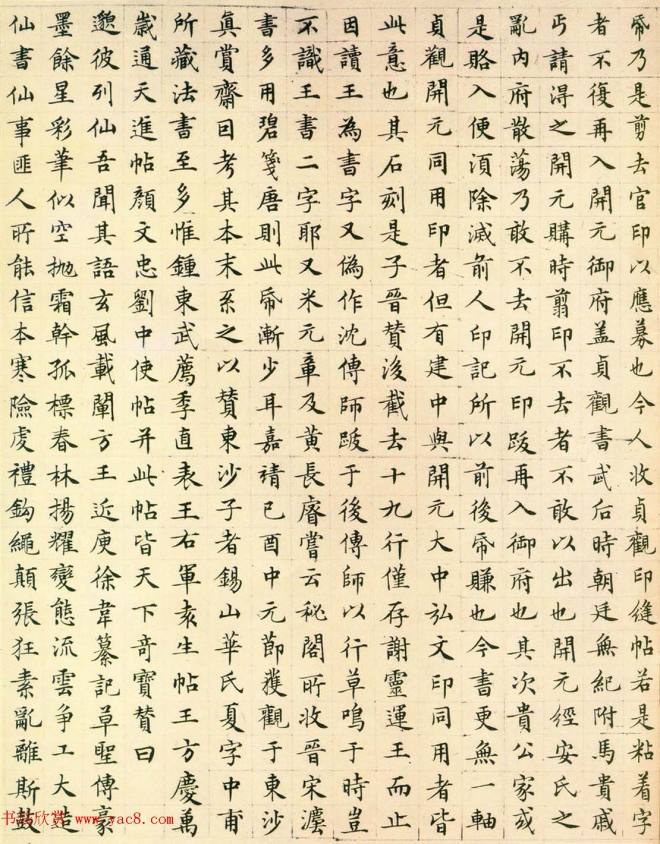 帋乃是剪去官印以應募也今人收貞觀印縫帖若是粘着字
者不復再入開元御府盖貞觀書武后時朝廷無紀附馬貴戚
丐請淂之開元購時剪印不去者不敢以出也開元經安氏之
亂內府散蕩乃敢不去開元印跋再入御府也其次貴公家或
是賂入便湏除滅前人印記所以前後帋賺也今書更無一軸
貞觀開元同用印者但有建中與開元大中弘文印同用者皆
此意也其石刻是子晉賛後截去十九行僅存謝靈運王而止
因讀王為書字又偽作沈傳師跋于後傳師以行草鳴于時豈
不識王書二字耶又米元章及黃長睿嘗云秘閣所收晉宋灋
書多用碧箋唐則此帋漸少耳嘉靖己酉中元節獲觀于東沙
真賞齋因考其本末系之以賛東沙子者錫山華氏夏字中甫
所藏法書至多惟鍾東武薦季直表王右軍袁生帖王方慶萬
歲通天進帖顏文忠劉中使帖并此帖皆天下奇寶賛曰
邈彼列仙吾聞其語玄風載闡方王近庾徐韋纂記草聖傳豪
墨餘星彩筆似空拋霜幹孤標春林揚耀變態流雲爭工大造
仙書仙事匪人所能信本寒險虔禮鈎繩顛張狂素亂離斯鼓
书法欣赏 www.yac8.com